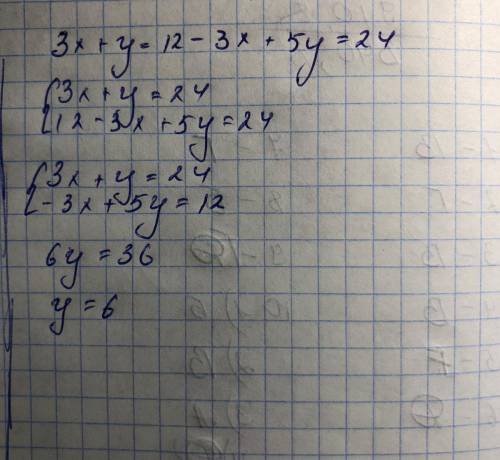 3x + y = 12 - 3x + 5y = 24
{3x + y = 24
12 - 3x + 5y = 24
{3x + y = 24
- 3x + 5y = 12
6y = 36
y = 6